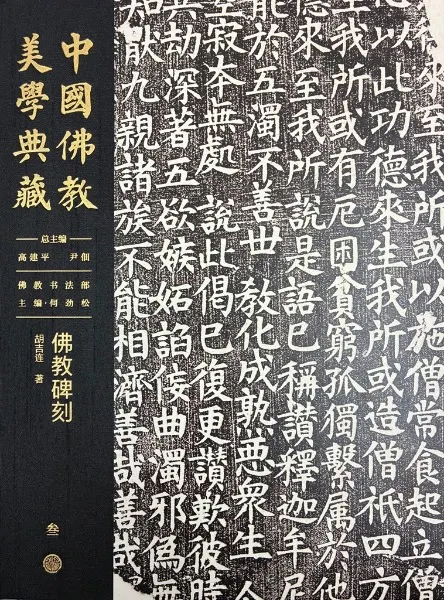 中國佛教
美學典藏
总主编
高建平 尹佃
佛教书法部
主编·何劲松
佛教碑刻
胡吉连 著
叁
來至我所或以施僧常食起立僧
以此功德來生我所或造僧祇四方
至我所或有厄困貧窮孤獨繫屬於他
德來至我所說是語已稱讚釋迦牟尼
能於五濁不善世教化成熟惡衆生
至寂本無處說此偈已復更讚歎彼時
劫深著五欲嫉妬諂佞曲濁邪偽無
知猒九親諸族不能相濟善哉善哉